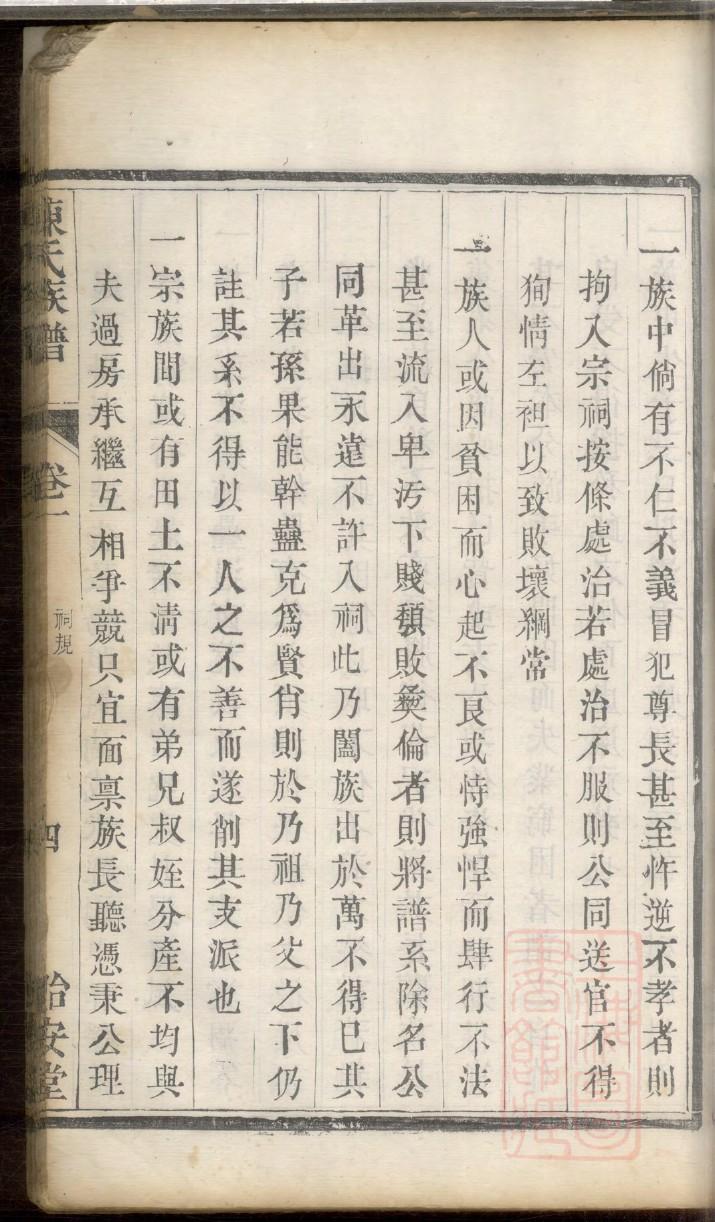 一族中倘有不仁不義冒犯尊長甚至忤逆不孝者則
拘入宗祠按條處治若處治不服則公同送官不得
狥情左袒以致敗壞綱常
一族人或因貧困而心起不良或恃強悍而肆行不法
甚至流入卑汚下賤頹敗彜倫者則將譜系除名公
同革出永遠不許入祠此乃闔族出於萬不得已其
子若孫果能幹蠱克爲賢肖則於乃祖乃父之下仍
註其系不得以一人之不善而遂削其支派也
一宗族間或有田土不清或有弟兄叔姪分產不均與
夫過房承繼互相爭競只宜面禀族長聽憑秉公理
陳氏族譜
卷一
祠規
四
怡安堂